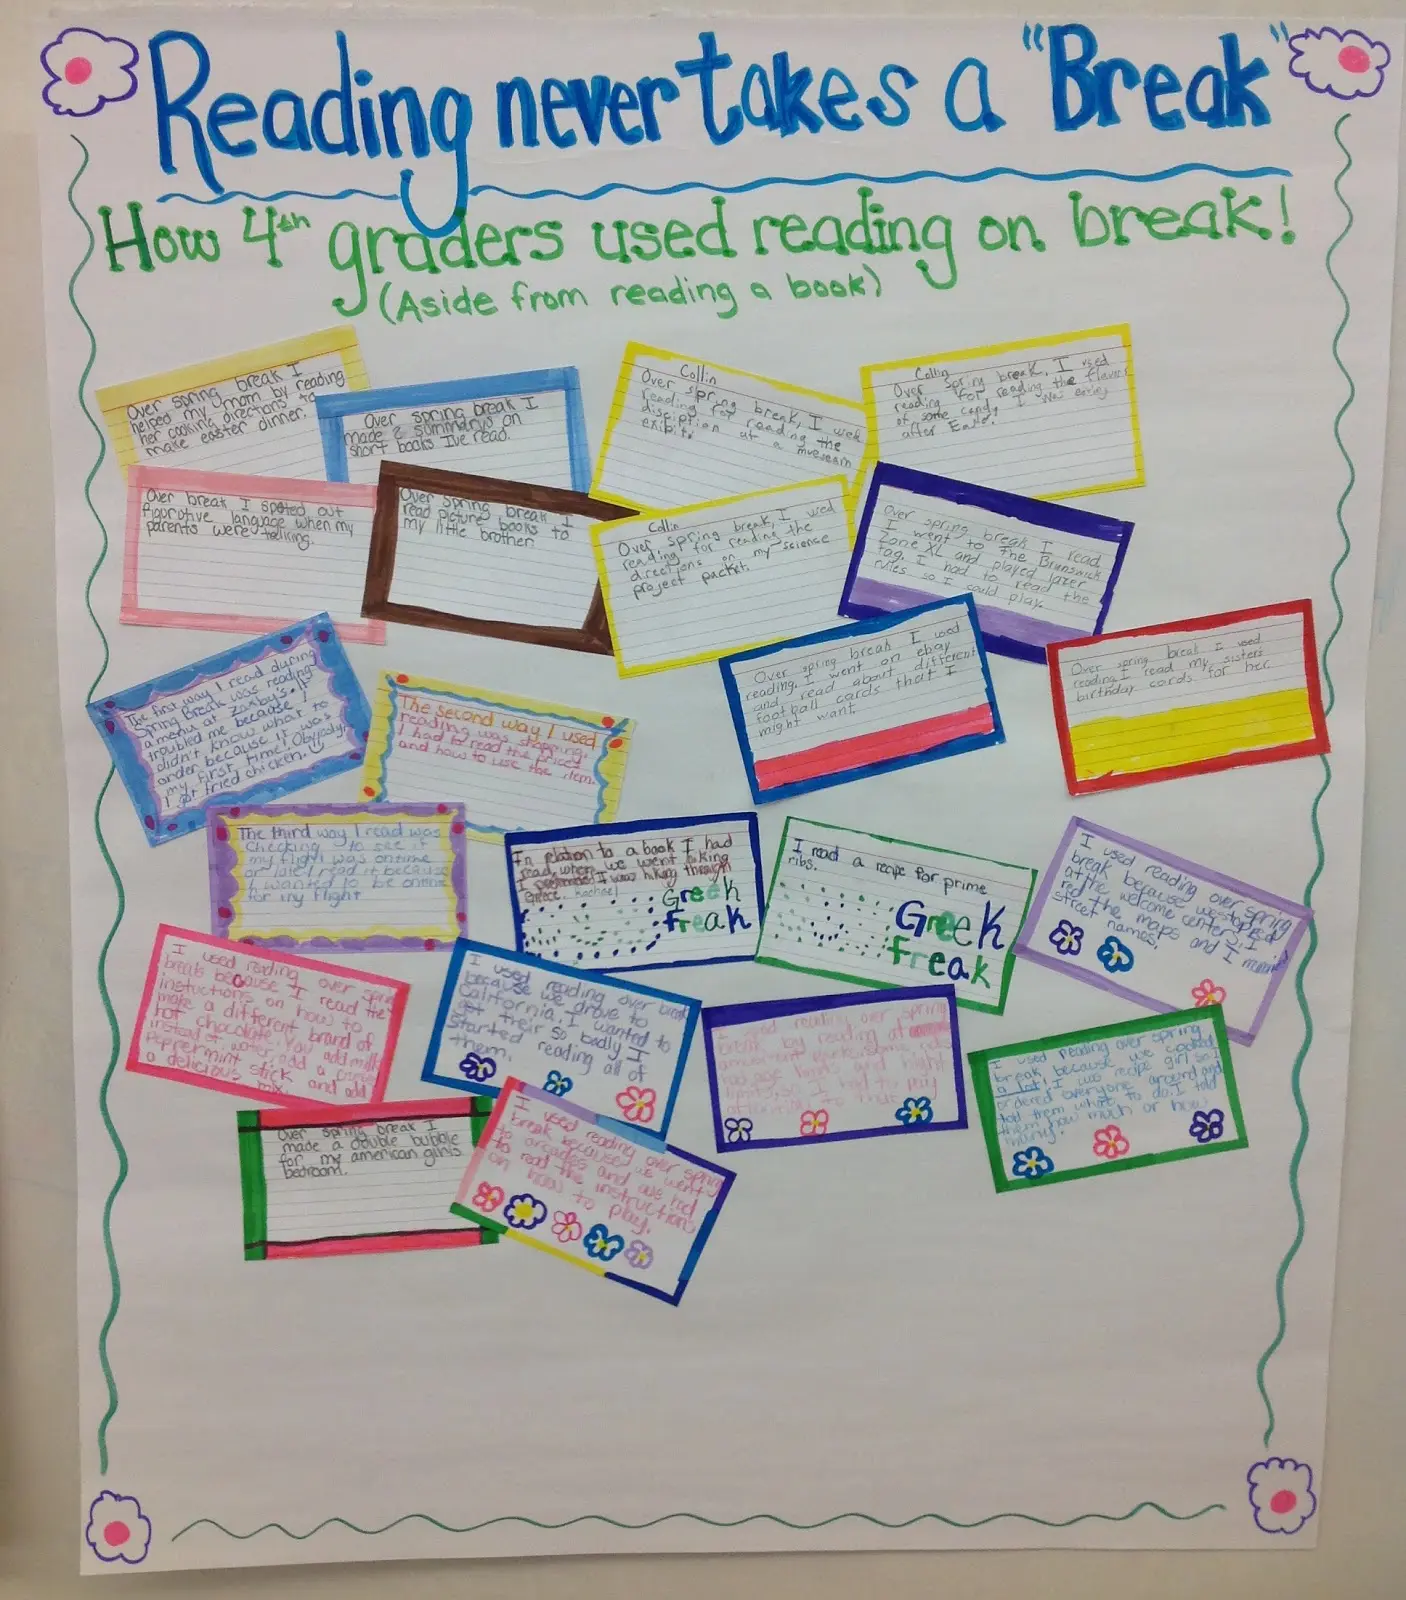 Reading never takes a "Break"
How 4th graders used reading on break!
(Aside from reading a book)
Over spring break I
helped my mom by reading
her cooking directions to
make easter dinner.
Over spring break I
made 2 summarys on
short books I've read.
Collin
Over spring break, I
reading for reading the
disciption at a museam
exibit.
Collin
Over spring break, I used
reading for reading the flavor
of some candy I was eating
after
Over break I spotted out
figurative language when my
parents were talking.
Over spring break I
read picture books to
my little brother.
Collin
Over spring break, I used
reading for reading the
directions on my science
project packet.
Over spring break I read
I went to The Brunswick
Zone XL and played lazer
tag. I had to read the
rules so I could play.
The first way I read during
Spring Break was reading
a menu at Zaxbys. It
troubled me because I
didn't know what to
order because it was
my first time! Obviously,
I got fried chicken.
The second way I used
reading was shopping.
I had to read the prices
and how to use the item.
Over spring break I used
reading. I went on ebay
and read about different
football cards that I
might want.
Over spring break I used
reading I read my sisters
birthday cards for her
The third way I read was
checking to see if
my flight was ontime
or late. I read it because
I wanted to be ontime
for my flight.
In relation to a book I had
read, when we went hiking
I I was hiking through
Greece.
Greek
Freak
I read a recipe for prime
ribs.
Greek
Freak
I used reading over spring
break because we stopped
at the welcome center. I
red the maps and I
street names.
I used reading over spring
break because I read the
instuctions on how to
make a different brand of
hot chocolate. You add milk
instead of water, add a
peppermint stick and add
a delicious
I used reading over break
because we drove to
California. I wanted to
get their so badly I
started reading all of
them.
I used reading over spring
break by reading at
amusment parks. Some rides
had age limits and hight
limits, so I had to pay
attention to that.
I used reading over spring
break because we cooked
a lot! I was recipe girl so I
ordered everyone around and
told them what to do. I told
them how much or how
many!
Over spring break I
made a double bubble
for my american girls
bedroom.
I used reading over spring
break because we went
to arcades and we had
to read the instructions
on how to play.